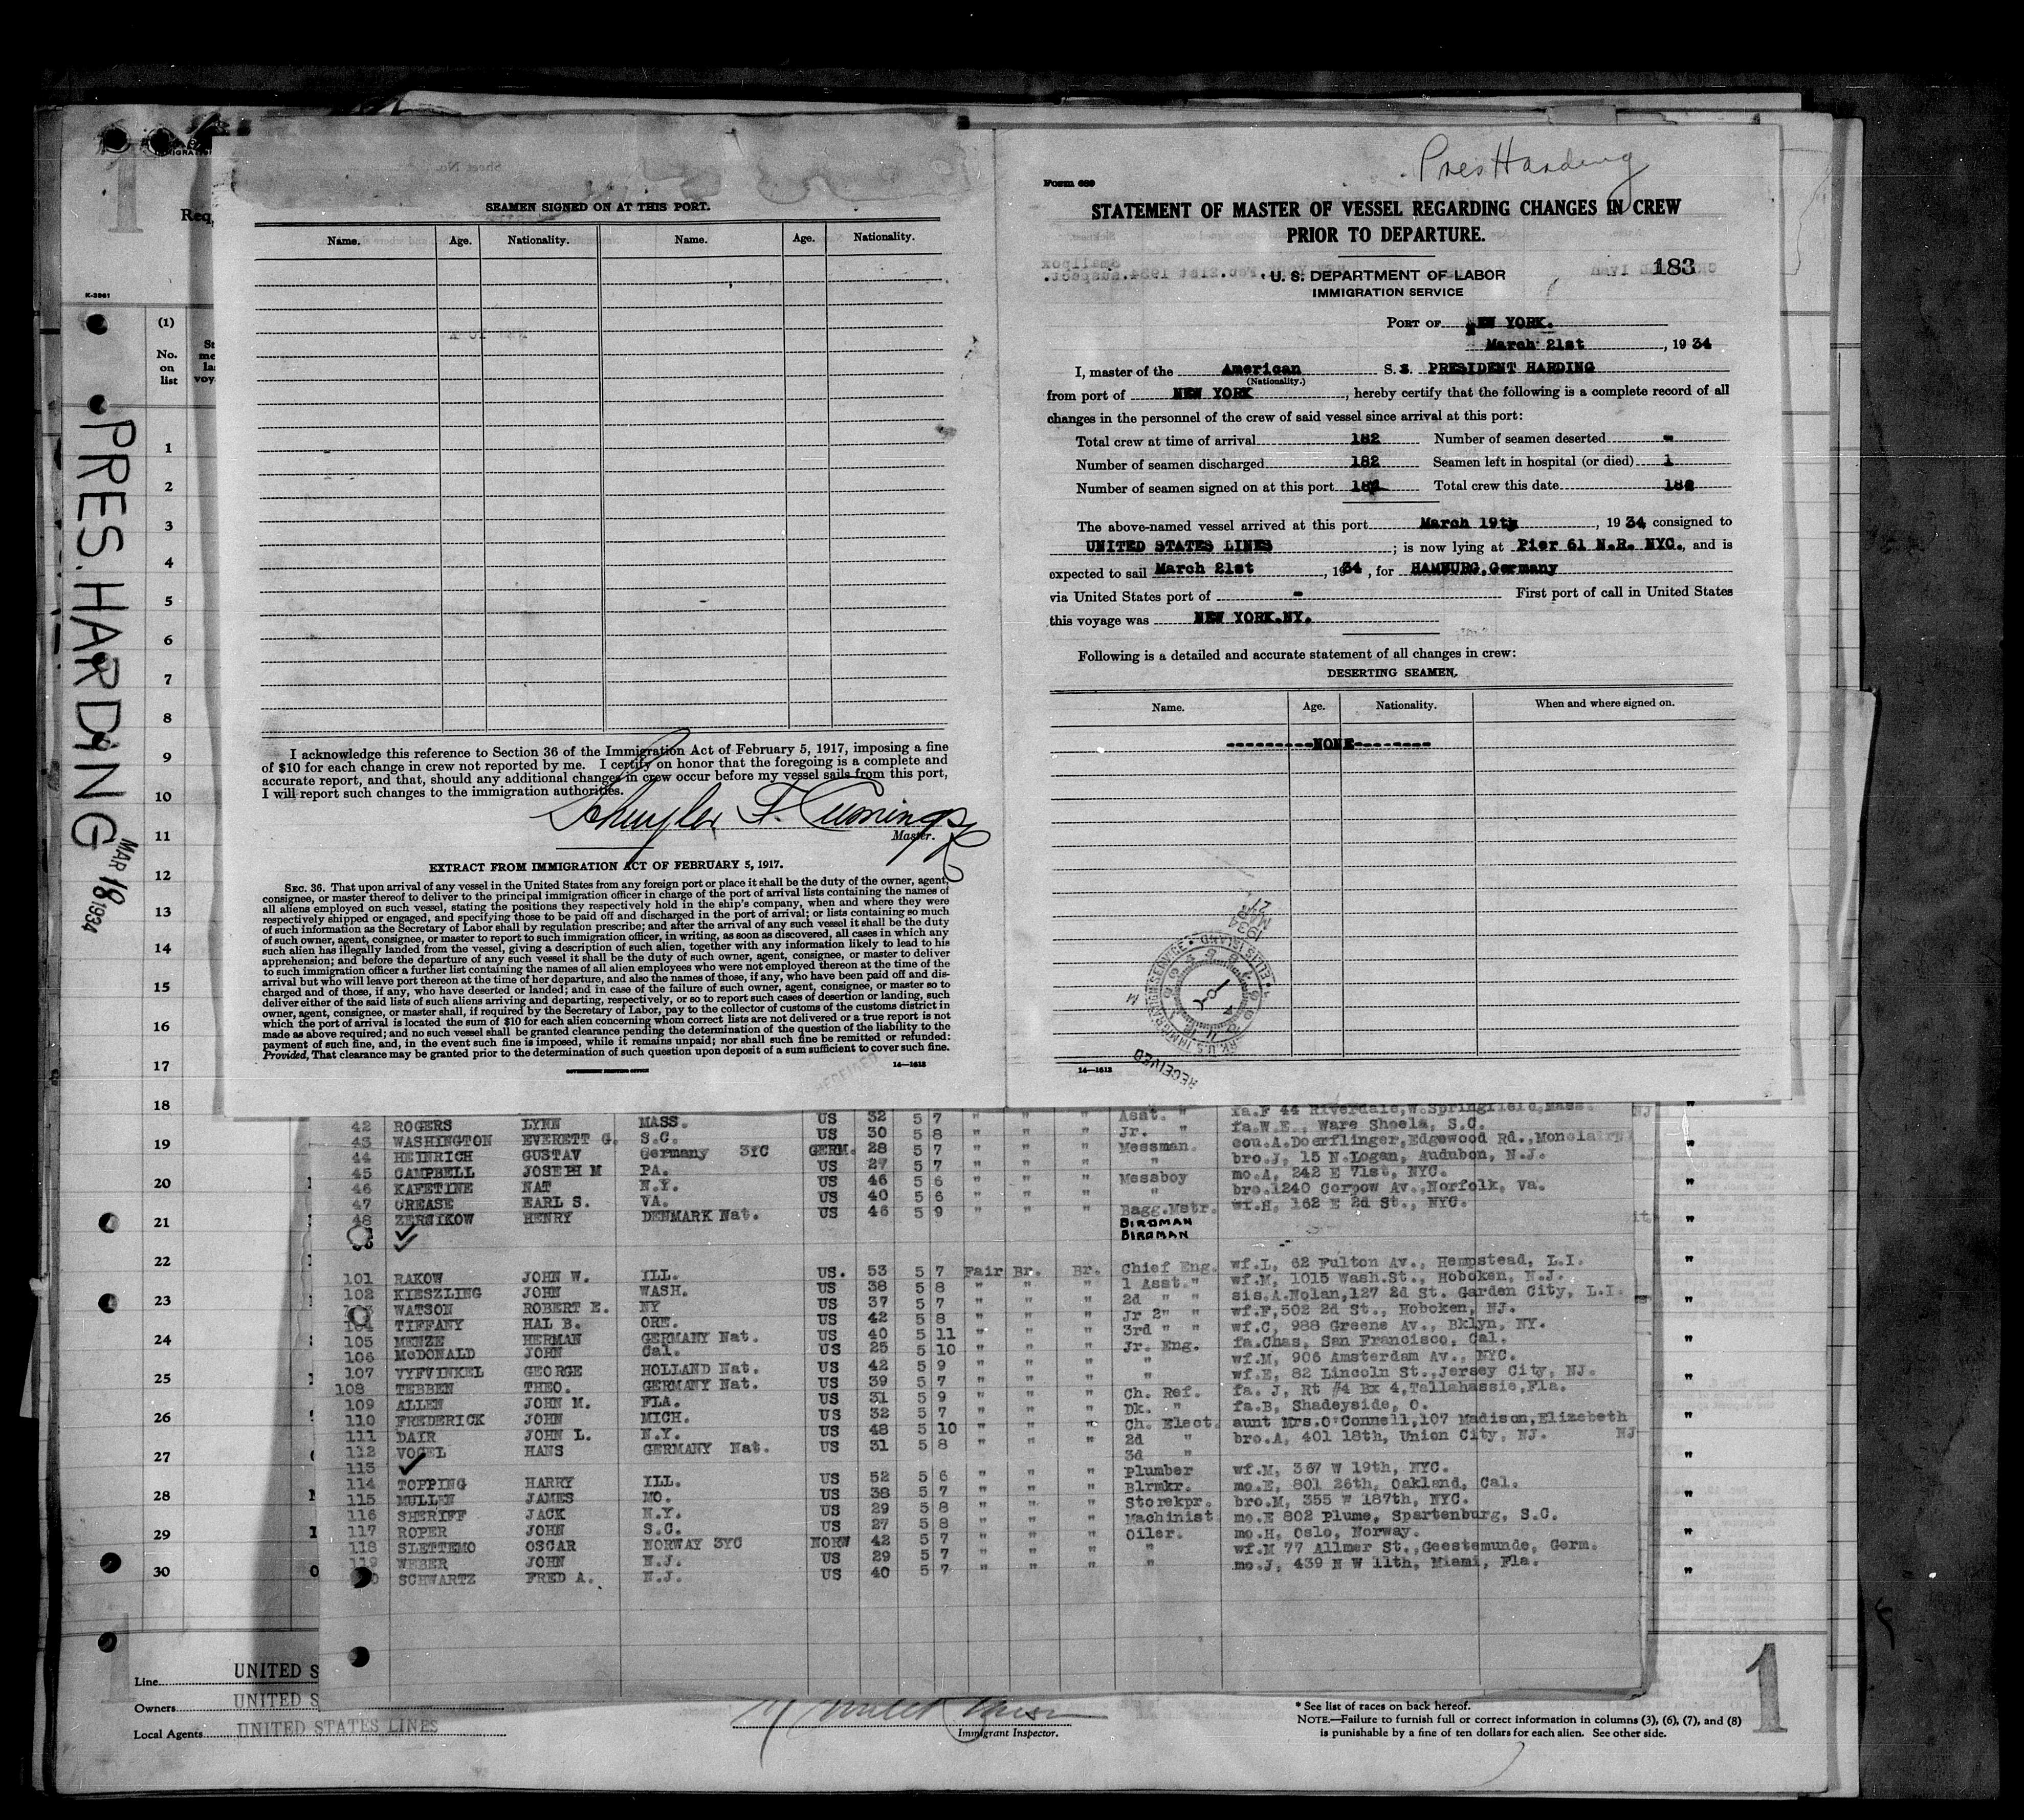 SEAMEN SIGNED ON AT THIS PORT.
Name. Age. Nationality. Name. Age. Nationality.
I acknowledge this reference to Section 36 of the Immigration Act of February 5, 1917, imposing a fine
of $10 for each change in crew not reported by me. I certify on honor that the foregoing is a complete and
accurate report, and that, should any additional changes in crew occur before my vessel sails from this port,
I will report such changes to the immigration authorities.
Schuyler F. Cumings
Master.
EXTRACT FROM IMMIGRATION ACT OF FEBRUARY 5, 1917.
SEC. 36. That upon arrival of any vessel in the United States from any foreign port or place it shall be the duty of the owner, agent,
consignee, or master thereof to deliver to the principal immigration officer in charge of the port of arrival lists containing the names of
all aliens employed on such vessel, stating the positions they respectively hold in the ship's company, when and where they were
respectively shipped or engaged, and specifying those to be paid off and discharged in the port of arrival; or lists containing so much
of such information as the Secretary of Labor shall by regulation prescribe; and after the arrival of any such vessel it shall be the duty
of such owner, agent, consignee, or master to report to such immigration officer, in writing, as soon as discovered, all cases in which any
such alien has illegally landed from the vessel, giving a description of such alien, together with any information likely to lead to his
apprehension; and before the departure of any such vessel it shall be the duty of such owner, agent, consignee, or master to deliver
to such immigration officer a further list containing the names of all alien employees who were not employed thereon at the time of the
arrival but who will leave port thereon at the time of her departure, and also the names of those, if any, who have been paid off and dis-
charged and of those, if any, who have deserted or landed; and in case of the failure of such owner, agent, consignee, or master so to
deliver either of the said lists of such aliens arriving and departing, respectively, or so to report such cases of desertion or landing, such
owner, agent, consignee, or master shall, if required by the Secretary of Labor, pay to the collector of customs of the customs district in
which the port of arrival is located the sum of $10 for each alien concerning whom correct lists are not delivered or a true report is not
made as above required; and no such vessel shall be granted clearance pending the determination of the question of the liability to the
payment of such fine, and, in the event such fine is imposed, while it remains unpaid; nor shall such fine be remitted or refunded:
Provided, That clearance may be granted prior to the determination of such question upon deposit of a sum sufficient to cover such fine.
GOVERNMENT PRINTING OFFICE 14—1613
Pres Harding
Form 689
STATEMENT OF MASTER OF VESSEL REGARDING CHANGES IN CREW
PRIOR TO DEPARTURE.
U. S. DEPARTMENT OF LABOR
IMMIGRATION SERVICE
183
PORT OF NEW YORK.
March 21st, 1934
I, master of the American S. S. PRESIDENT HARDING
(Nationality.)
from port of NEW YORK, hereby certify that the following is a complete record of all
changes in the personnel of the crew of said vessel since arrival at this port:
Total crew at time of arrival 182 Number of seamen deserted -
Number of seamen discharged 182 Seamen left in hospital (or died) 1
Number of seamen signed on at this port Total crew this date
The above-named vessel arrived at this port March 19th, 1934 consigned to
UNITED STATES LINES; is now lying at Pier 61 N.R. NYC., and is
expected to sail March 21st, 1934, for HAMBURG,Germany
via United States port of - First port of call in United States
this voyage was NEW YORK.NY.
Following is a detailed and accurate statement of all changes in crew:
DESERTING SEAMEN.
Name. Age. Nationality. When and where signed on.
---------NONE--------
RECEIVED
14—1613
PRES. HARDING
MAR 18 1934
Req
K-2961
(1)
No.
on
list
1
2
3
4
5
6
7
8
9
10
11
12
13
14
15
16
17
18
19
20
21
22
23
24
25
26
27
28
29
30
42 ROGERS LYNN MASS. US 32 5 7 " " " Asst. " fa.F 44 Riverdale,W.Springfield,Mass.
43 WASHINGTON EVERETT G. S.C. US 30 5 8 " " " Jr. " fa.W.E., Ware Shoels, S.C.
44 HEINRICH GUSTAV Germany 3YC GERM. 28 5 7 " " " Messman. cou.A.Doerflinger,Edgewood Rd.,Monclair
45 CAMPBELL JOSEPH M PA. US 27 5 7 " " " " bro.J, 15 N.Logan, Audubon, N.J.
46 KAFETINE NAT N.Y. US 46 5 6 " " " Messboy mo.A, 242 E 71st, NYC.
47 CREASE EARL S. VA. US 40 5 6 " " " " bro.1240 Corpow Av.,Norfolk, Va.
48 ZERNIKOW HENRY DENMARK Nat. US 46 5 9 " " " Bagg.Mstr. wf.H, 162 E 2d St., NYC.
BIRDMAN
BIRDMAN
101 RAKOW JOHN W. ILL. US. 53 5 7 Fair Br. Br. Chief Eng. wf.L, 62 Fulton Av., Hempstead, L.I.
102 KIESZLING JOHN WASH. US 38 5 8 " " " 1 Asst." wf.M, 1015 Wash.St., Hoboken, N.J.
103 WATSON ROBERT E. NY US 37 5 7 " " " 2d " " sis.A.Nolan,127 2d St. Garden City, L.I.
104 TIFFANY HAL B. ORE. US 42 5 8 " " " Jr 2" " wf.F,502 2d St., Hoboken, NJ.
105 MENZE HERMAN GERMANY Nat. US 40 5 11 " " " 3rd " " wf.C, 988 Greene Av., Bklyn, NY.
106 McDONALD JOHN Cal. US 25 5 10 " " " Jr. Eng. fa.Chas, San Francisco, Cal.
107 VYFVINKEL GEORGE HOLLAND Nat. US 42 5 9 " " " " wf.M, 906 Amsterdam Av., NYC.
108 TEBBEN THEO. GERMANY Nat. US 39 5 7 " " " " wf.E, 82 Lincoln St.,Jersey City, NJ.
109 ALLEN JOHN M. FLA. US 31 5 9 " " " Ch. Ref. fa. J, Rt #4 Bx 4,Tallahassie,Fla.
110 FREDERICK JOHN MICH. US 32 5 7 " " " Dk. " fa.B, Shadeyside, O.
111 DAIR JOHN L. N.Y. US 48 5 10 " " " Ch. Elect. aunt Mrs.O'Connell,107 Madison,Elizebeth
112 VOGEL HANS GERMANY Nat. US 31 5 8 " " " 2d " bro.A, 401 18th, Union City, NJ. NJ
113 3d "
114 TOPPING HARRY ILL. US 52 5 6 " " " Plumber wf.M, 367 W 19th, NYC.
115 MULLEN JAMES MO. US 38 5 7 " " " Blrmkr. mo.E, 801 26th, Oakland, Cal.
116 SHERIFF JACK N.Y. US 29 5 8 " " " Storekpr. bro.M, 355 W 187th, NYC.
117 ROPER JOHN S.C. US 27 5 8 " " " Machinist mo.E 802 Plume, Spartenburg, S.C.
118 SLETTEMO OSCAR NORWAY 3YC NORW 42 5 7 " " " Oiler. mo.H, Oslo, Norway.
119 WEBER JOHN N.J. US 29 5 7 " " " " wf.M 77 Allmer St.,Geestemunde, Germ.
SCHWARTZ FRED A. N.J. US 40 5 7 " " " " mo.J, 439 N W 11th, Miami, Fla.
Line UNITED S
Owners UNITED S
Local Agents UNITED STATES LINES
Immigrant Inspector.
* See list of races on back hereof.
NOTE.—Failure to furnish full or correct information in columns (3), (6), (7), and (8)
is punishable by a fine of ten dollars for each alien. See other side.
1